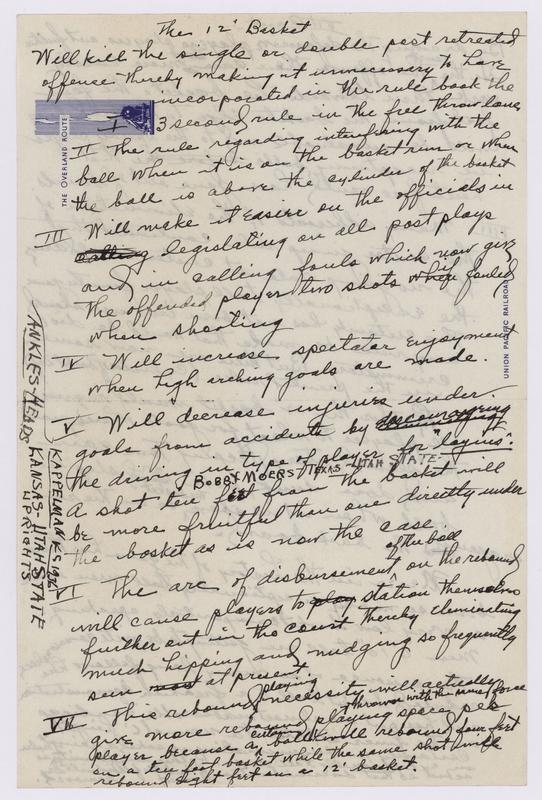 The 12' Basket
Will kill the single or double post retreated
offense thereby making it unnecessary to have
incorporated in the rule book the
I 3 second rule in the free throw lane
II The rule regarding interfering with the
ball when it is on the basket rim or when
the ball is above the cylinder of the basket
III Will make it easier on the officials in
calling legislating on all post plays
and in calling fouls which now give
the offended player two shots when if fouled
when shooting
IV Will increase spectator enjoyment
when high arching goals are made.
V Will decrease injuries under
goals from accidents by discouraging
the driving in type of player for "layins".
BOBBY MOERS TEXAS - UTAH STATE -
A shot ten feet from the basket will
be more fruitful than one directly under
the basket as is now the case.
of the ball
VI The arc of disbursement on the rebound
will cause players to play station themselves
further out in the court thereby eliminating
much hipping and nudging so frequently
seen at present
VII This rebound playing necessity will actually
give more rebound playing space per
thrown with the same force
player because a ball will rebound four feet
on a ten foot basket while the same shot will
rebound eight feet on a 12' basket.
THE OVERLAND ROUTE
UNION PACIFIC RAILROAD
ANKLES-HEADS
KANSAS-UTAH STATE
UPRIGHTS